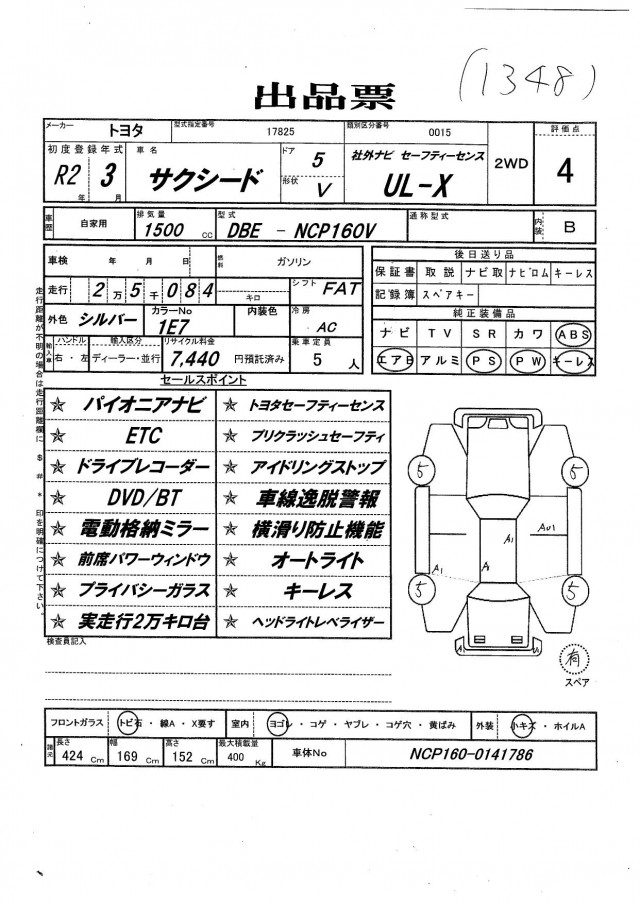 (1348)
出品票
メーカー トヨタ 型式指定番号 17825 類別区分番号 0015 2WD 評価点 4
初度登録年式 R2年 3月 車名 サクシード ドア 5 形状 V 社外ナビ セーフティーセンス UL-X
車歴 自家用 排気量 1500 CC 型式 DBE - NCP160V 通称型式 内装 B
車検 年 月 日 燃料 ガソリン
走行 2万5千084 キロ シフト FAT
外色 シルバー カラーNo 1E7 内装色 冷房 AC
輸入車 ハンドル 右・左 輸入区分 ディーラー・並行 リサイクル料金 7,440 円預託済み 乗車定員 5 人
後日送り品
保証書 取説 ナビ取 ナビロム キーレス
記録簿 スペアキー
純正装備品
ナビ TV SR カワ ABS
エアB アルミ PS PW キーレス
走行距離が不明の場合は走行距離欄に $ # * 印を明確につけて下さい。
セールスポイント
☆ パイオニアナビ ☆ トヨタセーフティーセンス
☆ ETC ☆ プリクラッシュセーフティ
☆ ドライブレコーダー ☆ アイドリングストップ
☆ DVD/BT ☆ 車線逸脱警報
☆ 電動格納ミラー ☆ 横滑り防止機能
☆ 前席パワーウィンドウ ☆ オートライト
☆ プライバシーガラス ☆ キーレス
☆ 実走行2万キロ台 ☆ ヘッドライトレベライザー
5 5
A1 AU1
A1 A1
5 5
有
スペア
検査員記入
フロントガラス トビ石・線A・X要す 室内 ヨゴレ・コゲ・ヤブレ・コゲ穴・黄ばみ 外装 小キズ・ホイルA
諸元 長さ 424 Cm 幅 169 Cm 高さ 152 Cm 最大積載量 400 Kg 車体No NCP160-0141786